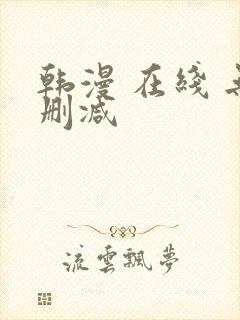 韩漫 在线
删减
流雲飄夢